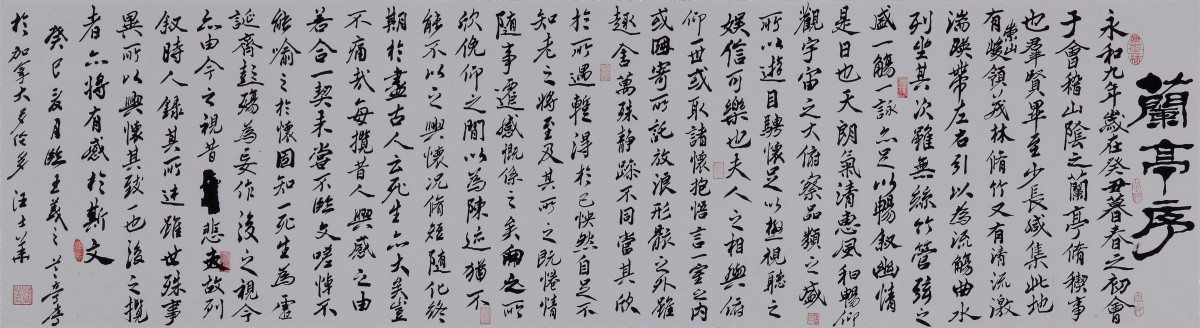 蘭亭序
永和九年歲在癸丑暮春之初會
于會稽山陰之蘭亭脩禊事
也羣賢畢至少長咸集此地
有崇山峻領茂林脩竹又有清流激
湍暎帶左右引以為流觴曲水
列坐其次雖無絲竹管弦之
盛一觴一詠亦足以暢敘幽情
是日也天朗氣清惠風和暢仰
觀宇宙之大俯察品類之盛
所以遊目騁懷足以極視聽之
娛信可樂也夫人之相與俯
仰一世或取諸懷抱悟言一室之內
或因寄所託放浪形骸之外雖
趣舍萬殊靜躁不同當其欣
於所遇輒得於己怏然自足不
知老之將至及其所之既惓情
隨事遷感慨係之矣向之所
欣俛仰之間以為陳迹猶不
能不以之興懷況脩短隨化終
期於盡古人云死生亦大矣豈
不痛哉每攬昔人興感之由
若合一契未嘗不臨文嗟悼不
能喻之於懷固知一死生為虛
誕齊彭殤為妄作後之視今
亦由今之視昔悲夫故列
敘時人錄其所述雖世殊事
異所以興懷其致一也後之攬
者亦將有感於斯文
癸巳夏月臨王羲之蘭亭序
於加拿大多伦多 汪士華